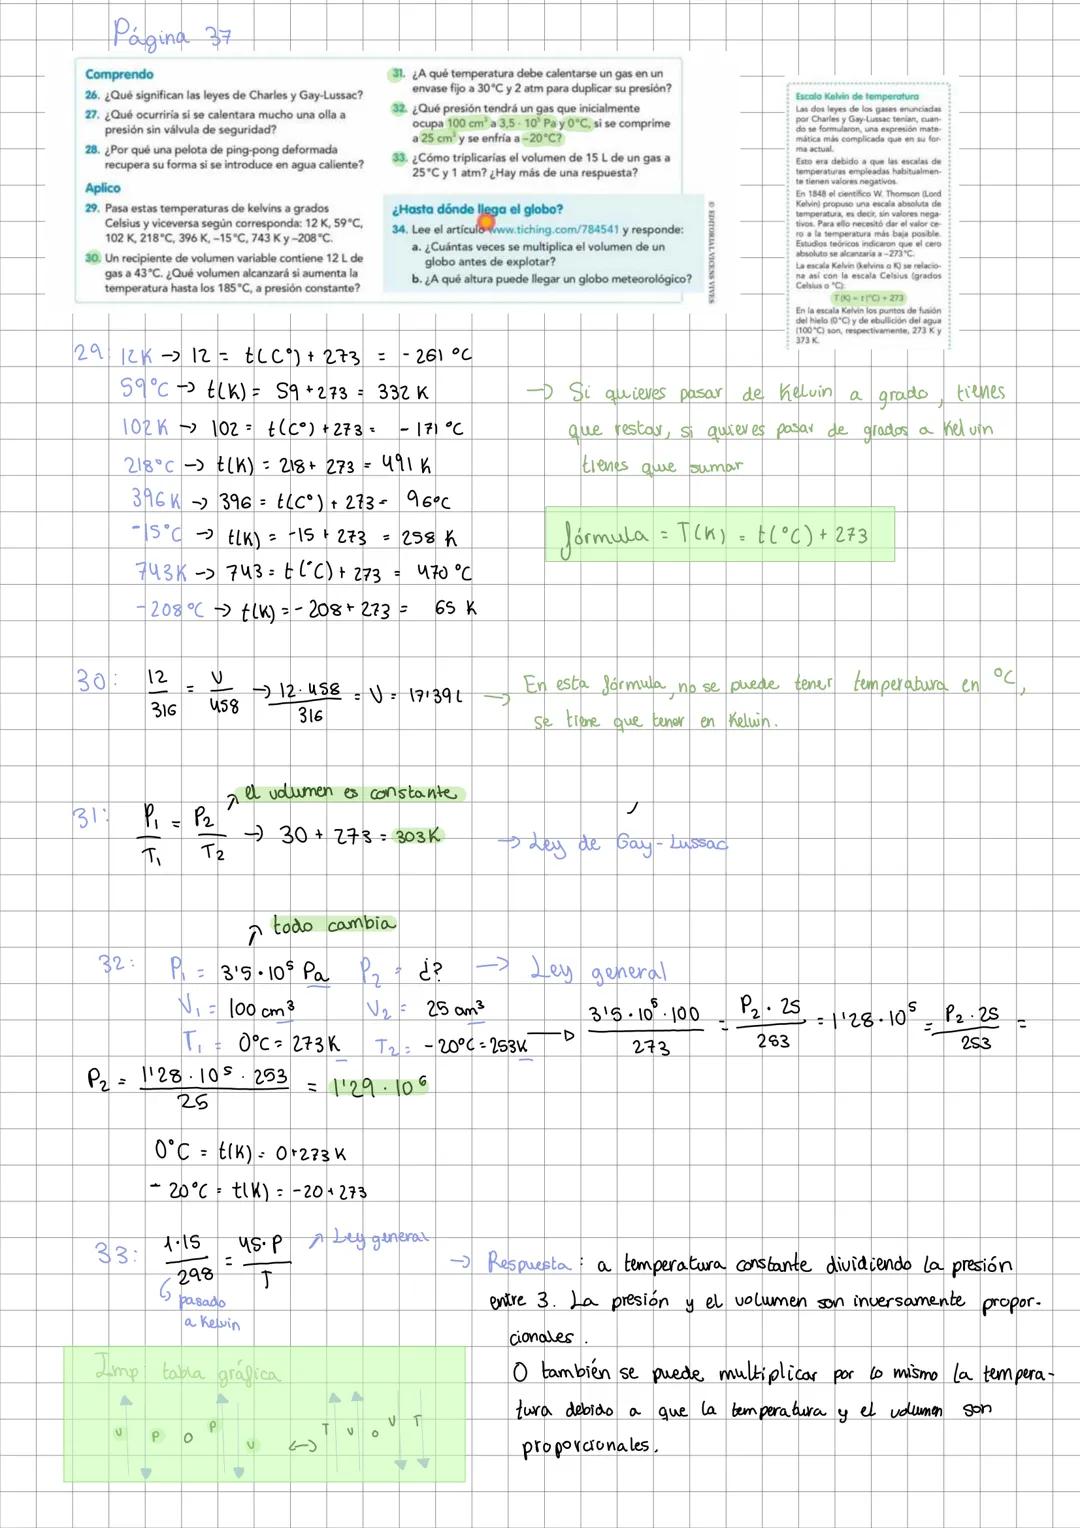 Página 37
Comprendo
26. ¿Qué significan las leyes de Charles y Gay-Lussac?
27. ¿Qué ocurriría si se calentara mucho una olla a
presión sin válvula de seguridad?
28. ¿Por qué una pelota de ping-pong deformada
recupera su forma si se introduce en agua caliente?
Aplico
29. Pasa estas temperaturas de kelvins a grados
Celsius y viceversa según corresponda: 12 K, 59°C,
102 K, 218°C, 396 K, -15°C, 743 K y -208°C.
30. Un recipiente de volumen variable contiene 12 L de
gas a 43°C. ¿Qué volumen alcanzará si aumenta la
temperatura hasta los 185°C, a presión constante?
31. ¿A qué temperatura debe calentarse un gas en un
envase fijo a 30°C y 2 atm para duplicar su presión?
32. ¿Qué presión tendrá un gas que inicialmente
ocupa 100 cm³ a 3,5 · 10⁵ Pa y 0°C, si se comprime
a 25 cm³ y se enfría a -20°C?
33. ¿Cómo triplicarías el volumen de 15 L de un gas a
25°C y 1 atm? ¿Hay más de una respuesta?
¿Hasta dónde llega el globo?
34. Lee el artículo www.tiching.com/784541 y responde:
a. ¿Cuántas veces se multiplica el volumen de un
globo antes de explotar?
b. ¿A qué altura puede llegar un globo meteorológico?
© EDITORIAL VICENS VIVES
Escala Kelvin de temperatura
Las dos leyes de los gases enunciadas
por Charles y Gay-Lussac tenían, cuan-
do se formularon, una expresión mate-
mática más complicada que en su for-
ma actual.
Esto era debido a que las escalas de
temperaturas empleadas habitualmen-
te tienen valores negativos.
En 1848 el científico W. Thomson (Lord
Kelvin) propuso una escala absoluta de
temperatura, es decir, sin valores nega-
tivos. Para ello necesitó dar el valor ce-
ro a la temperatura más baja posible.
Estudios teóricos indicaron que el cero
absoluto se alcanzaría a -273°C.
La escala Kelvin (kelvins o K) se relacio-
na así con la escala Celsius (grados
Celsius o °C):
T (K) = t (°C) + 273
En la escala Kelvin los puntos de fusión
del hielo (0°C) y de ebullición del agua
(100°C) son, respectivamente, 273 K y
373 K.
29: 12K → 12 = t(C°) + 273 = -261 °C
59°C → t(K) = 59 + 273 = 332 K
102K → 102 = t(C°) + 273 = -171 °C
218°C → t(K) = 218 + 273 = 491 K
396K → 396 = t(C°) + 273 = 96°C
-15°C → t(K) = -15 + 273 = 258 K
743K → 743 = t(°C) + 273 = 470 °C
-208°C → t(K) = -208 + 273 = 65 K
→ Si quieres pasar de Kelvin a grado, tienes
que restar, si quieres pasar de grados a Kelvin
tienes que sumar
fórmula = T(K) = t(°C) + 273
30: 12/316 = V/458 → 12·458/316 = V = 17'39L →
En esta fórmula, no se puede tener temperatura en °C,
se tiene que tener en Kelvin.
el volumen es constante
31: P₁/T₁ = P₂/T₂ → 30 + 273 = 303K → Ley de Gay-Lussac
todo cambia
32: P₁ = 3'5·10⁵ Pa P₂ = ¿? → Ley general
V₁ = 100 cm³ V₂ = 25 cm³
T₁ = 0°C = 273K T₂ = -20°C = 253K → 3'5·10⁵·100/273 = P₂·25/253 = 1'28·10⁵ = P₂·25/253 =
P₂ = 1'28·10⁵·253/25 = 1'29·10⁶
0°C = t(K) = 0+273K
-20°C = t(K) = -20+273
33: 1·15/298 = 45·P/T Ley general
pasado
a Kelvin
→ Respuesta: a temperatura constante dividiendo la presión
entre 3. La presión y el volumen son inversamente propor-
cionales.
O también se puede multiplicar por lo mismo la tempera-
tura debido a que la temperatura y el volumen son
proporcionales.
Imp: tabla gráfica
V P O P V ↔ T V O V T